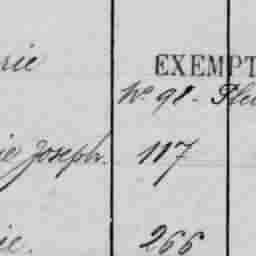 rie EXEMPT
No 98 -
ie Joseph. 117
ie. 266